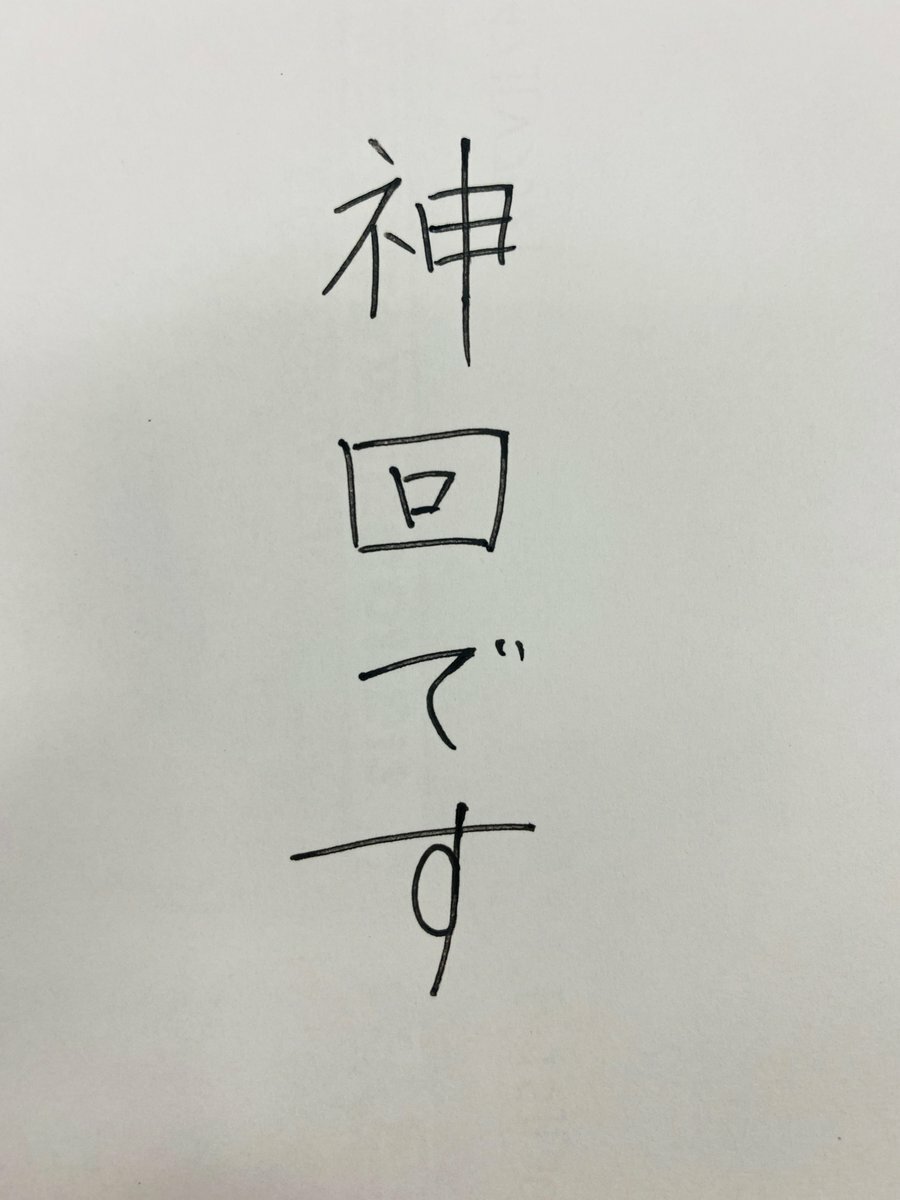 神回です